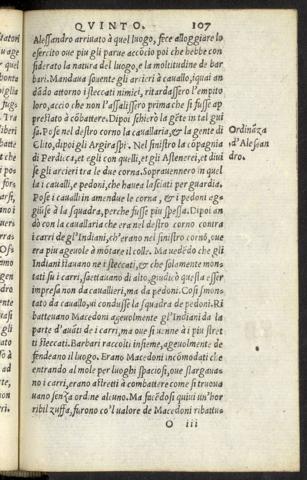 QVINTO. 107
Alessandro arriuato à quel luogo, fece alloggiare lo
esercito oue piu gli parue accōcio poi che hebbe con
siderato la natura del luogo, e la moltitudine de bar
bari. Mandaua souente gli arcieri à cauallo, iquai an
dādo attorno i steccati nimici, ritardassero l'empito
loro, accio che non l'assalissero prima che si fusse ap
prestato à cōbattere. Dipoi schierò la gēte in tal gui
sa. Pose nel destro corno la cauallaria, & la gente di
Clito, dipoi gli Argiraspi. Nel sinistro la cōpagnia
di Perdicca, et egli con quelli, et gli Astenerei, et diui
se gli arcieri tra le due corna. Soprauennero in quel
la i caualli, e pedoni, che haueua lasciati per guardia.
Pose i caualli in amendue le corna, & i pedoni ag-
giūse à la squadra, perche fusse piu spessa. Dipoi an
dò con la cauallaria che era nel destro corno contra
i carri de gl'Indiani, ch'erano nel sinistro cornò, oue
era piu ageuole à mōtare il colle. Ma uedēdo che gli
Indiani stauano ne i steccati, & che solamente mon-
tati su i carri, saettauano di alto, giudicò questa esser
impresa non da cauallieri, ma da pedoni. Cosi smon-
tato da cauallo, ui condusse la squadra de pedoni. Ri
batteuano Macedoni ageuolmente gl'Indiani da la
parte d'auāti de i carri, ma oue si uenne à i piu stret
ti steccati. Barbari raccolti insieme, ageuolmente de
fendeano il luogo. Erano Macedoni incōmodati che
entrando al mole per luoghi spaciosi, oue slargaua-
no i carri, erano astretti à combattere come si trouoa
uano senza ordine alcuno. Ma facēdosi quiui un'hor
ribil zuffa, furono co'l ualore de Macedoni ribattu-
O iii
Ordināza
d'Alessan
dro.